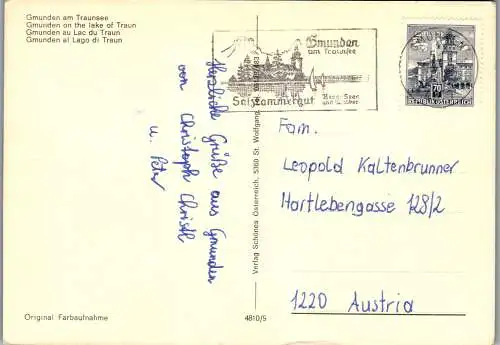 Gmunden am Traunsee
Gmunden on the lake of Traun
Gmunden au Lac du Traun
Gmunden al Lago di Traun
Herzliche Grüße aus Gmunden
von Christoph Christl
u. Peter
Original Farbaufnahme
4810/5
Verlag Schönes Österreich, 5360 St. Wolfgang
Gmunden
am Traunsee
Salzkammergut
70
REPUBLIK ÖSTERREICH
Fam.
Leopold Kaltenbrunner
Hartlebengasse 128/2
1220 Austria